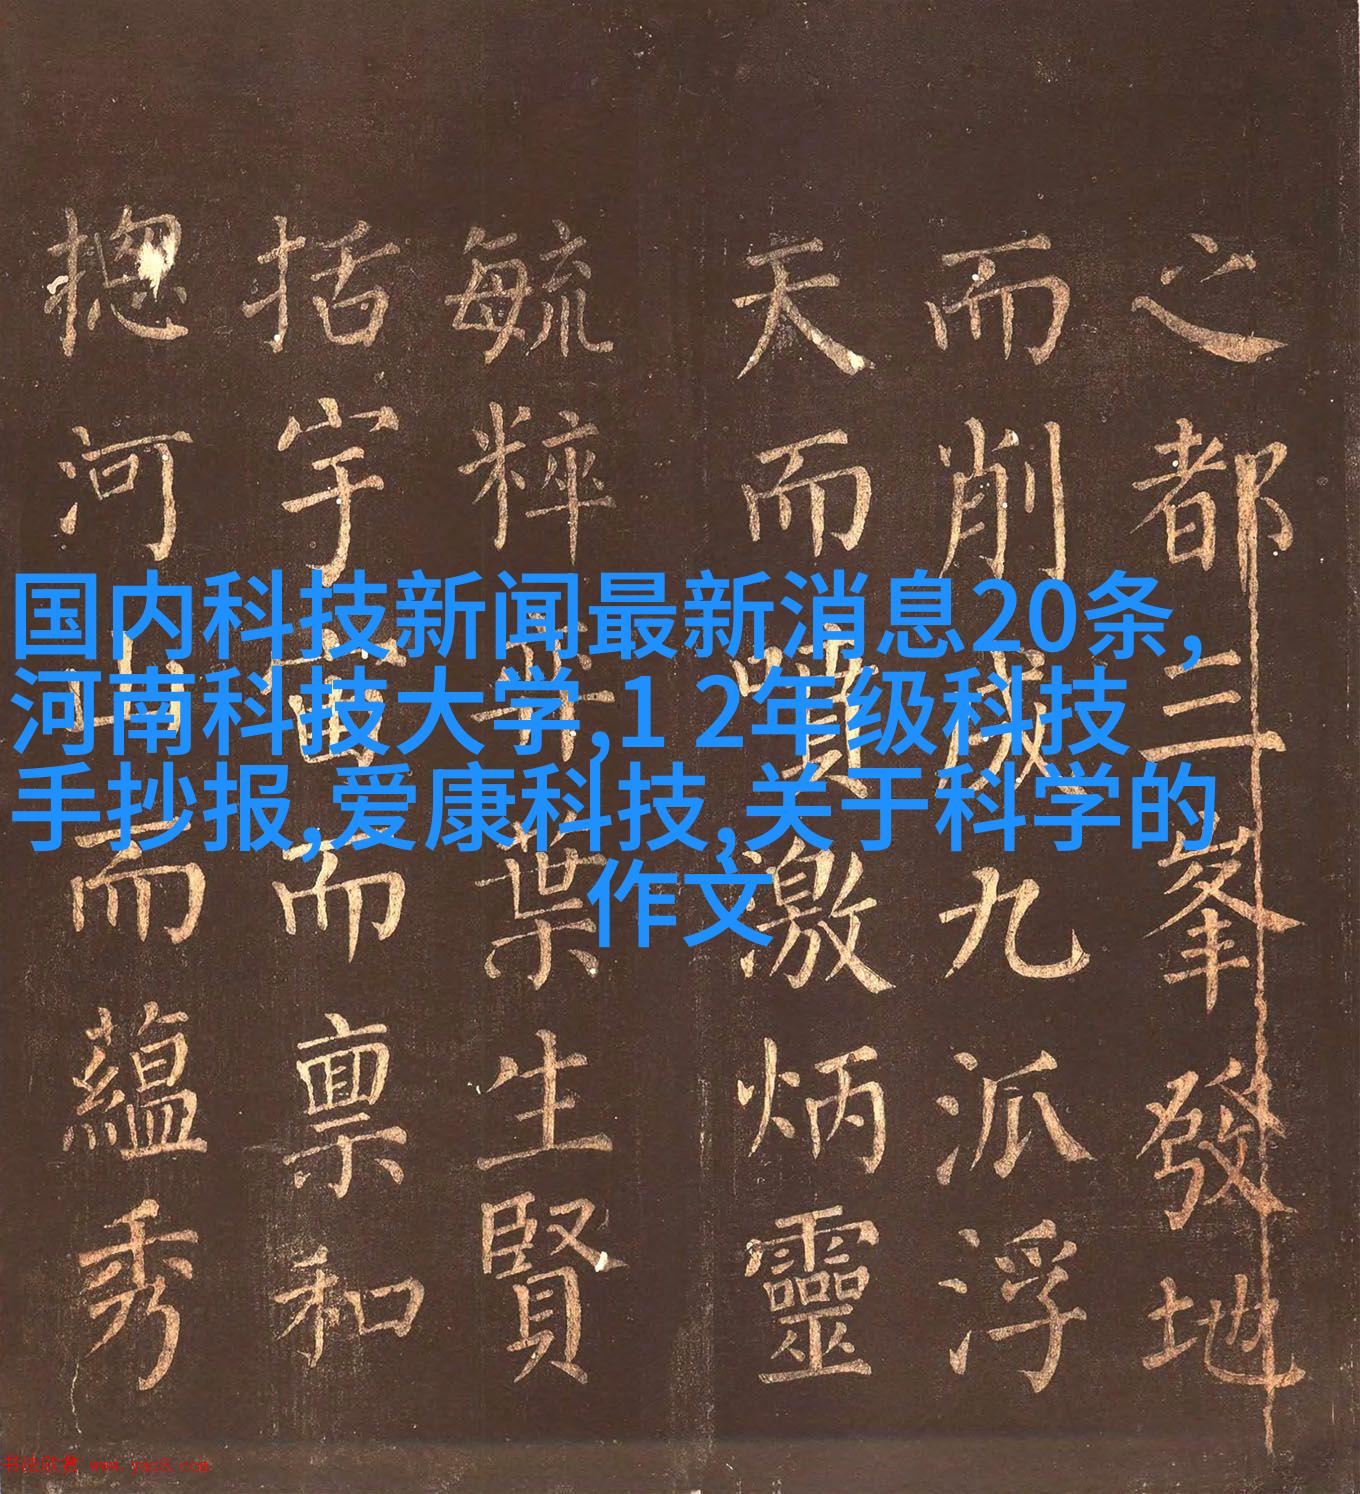 国内科技新闻最新消息20条,
河南科技大学,1 2年级科技
手抄报,爱康科技,关于科学的
作文
之都三峯發地
而削成九派浮
天而噴激炳靈
毓粹弈葉生賢
括宇宙而稟和
摠河山而蘊秀
书法欣赏 www.yac8.com